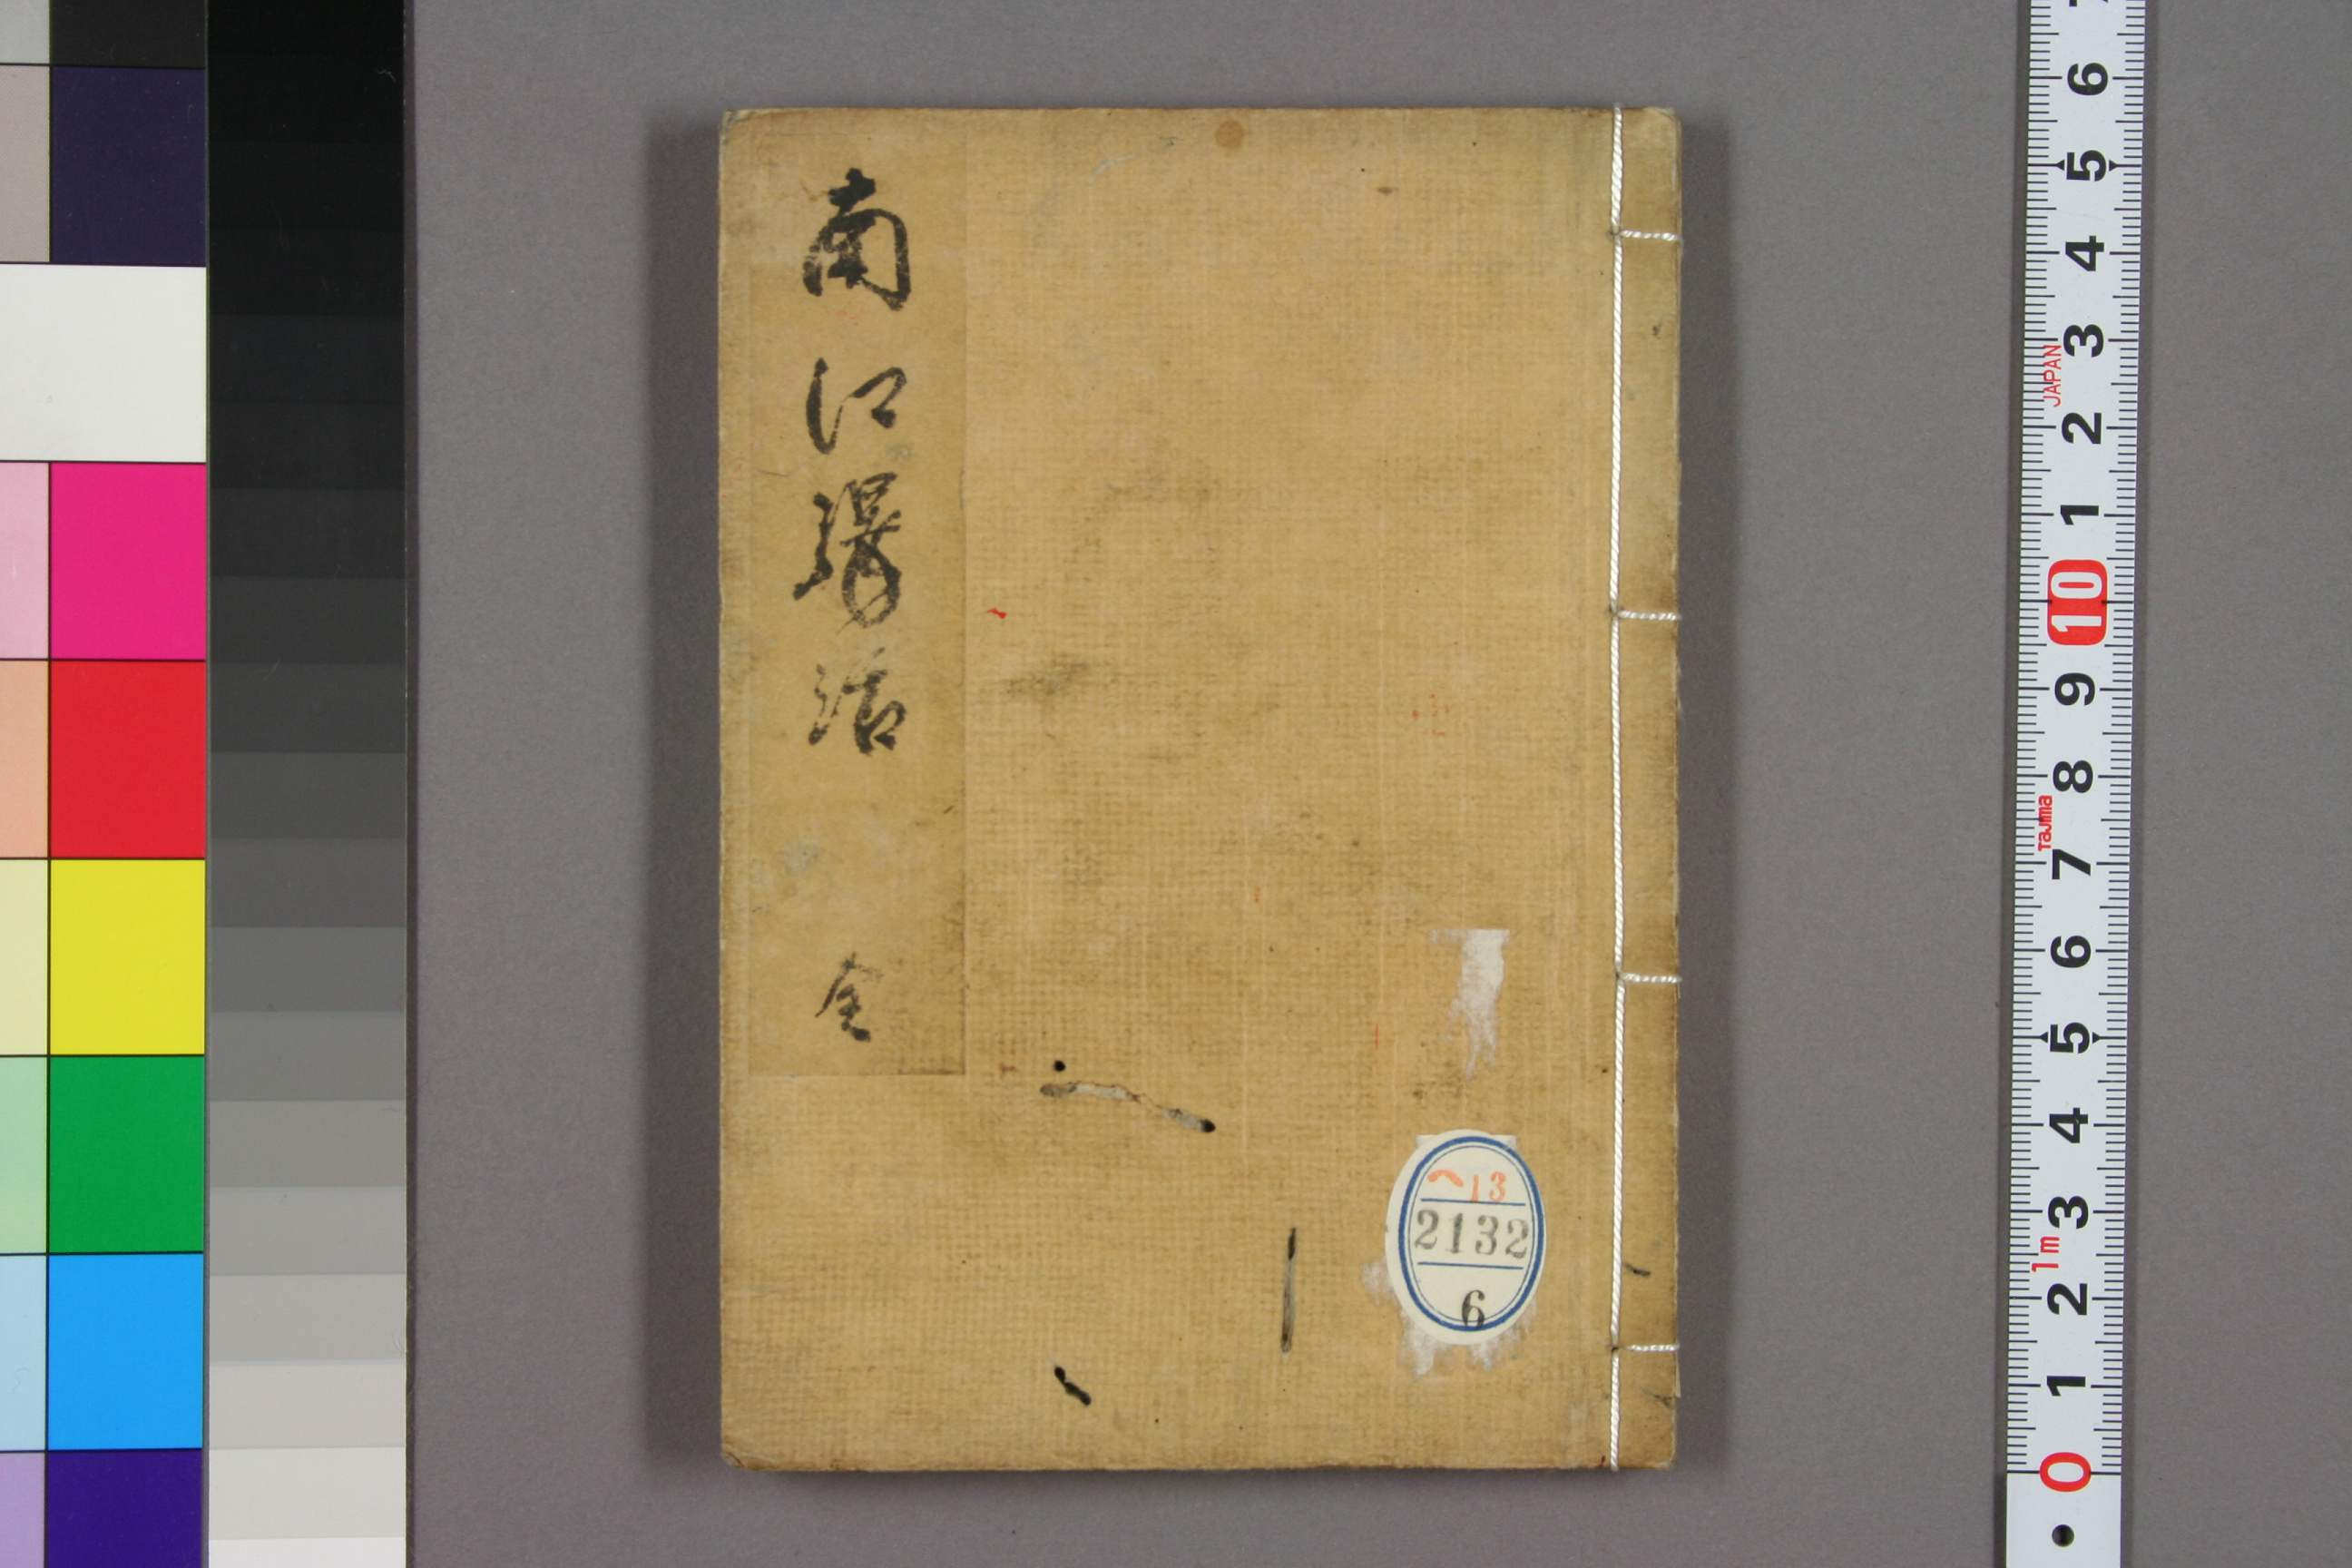 南江驛話 全
へ13
2132
6
6
5
4
3
JAPAN
2
1
10
9
8
Tajima
7
6
5
4
3
1m
2
1
0